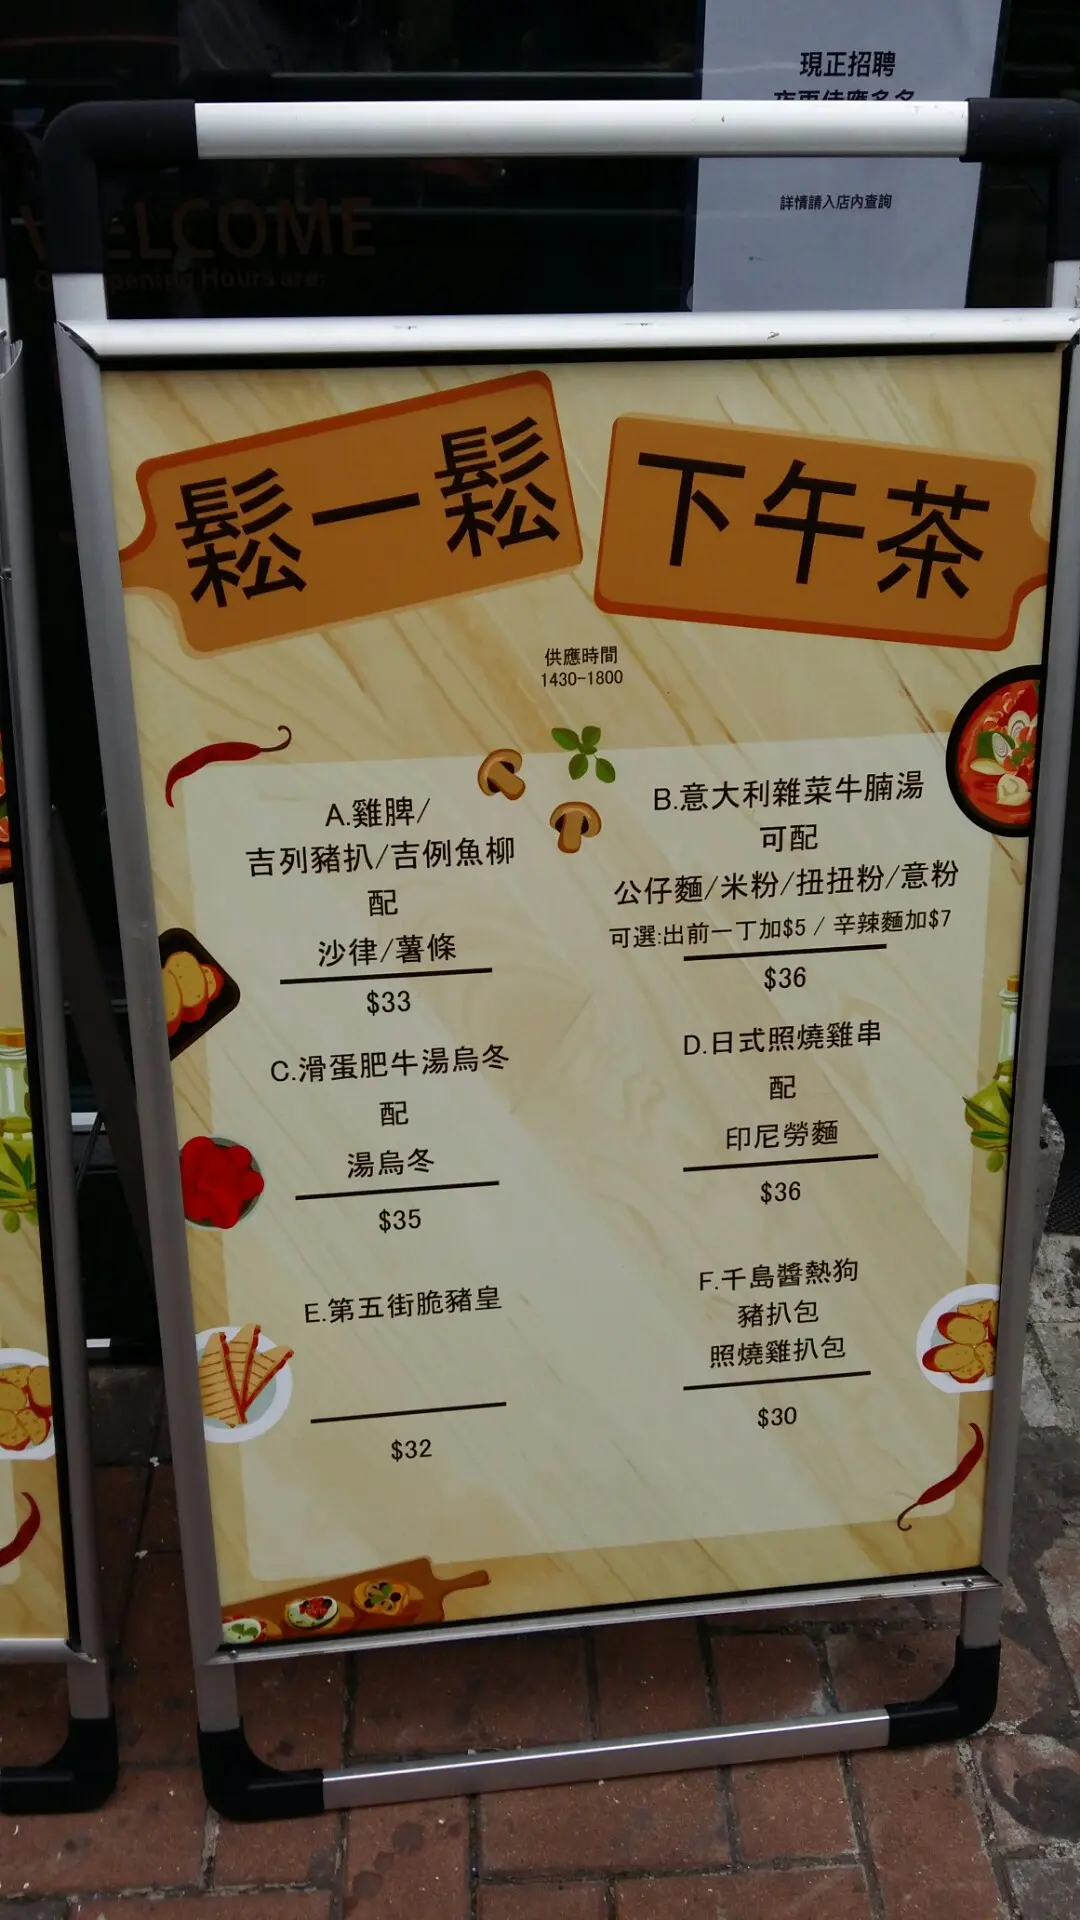 現正招聘
詳情請入店內查詢
WELCOME
Our Opening Hours are:
鬆一鬆
下午茶
供應時間
1430-1800
A.雞脾/
吉列豬扒/吉例魚柳
配
沙律/薯條
$33
B.意大利雜菜牛腩湯
可配
公仔麵/米粉/扭扭粉/意粉
可選:出前一丁加$5 / 辛辣麵加$7
$36
C.滑蛋肥牛湯烏冬
配
湯烏冬
$35
D.日式照燒雞串
配
印尼勞麵
$36
E.第五街脆豬皇
$32
F.千島醬熱狗
豬扒包
照燒雞扒包
$30